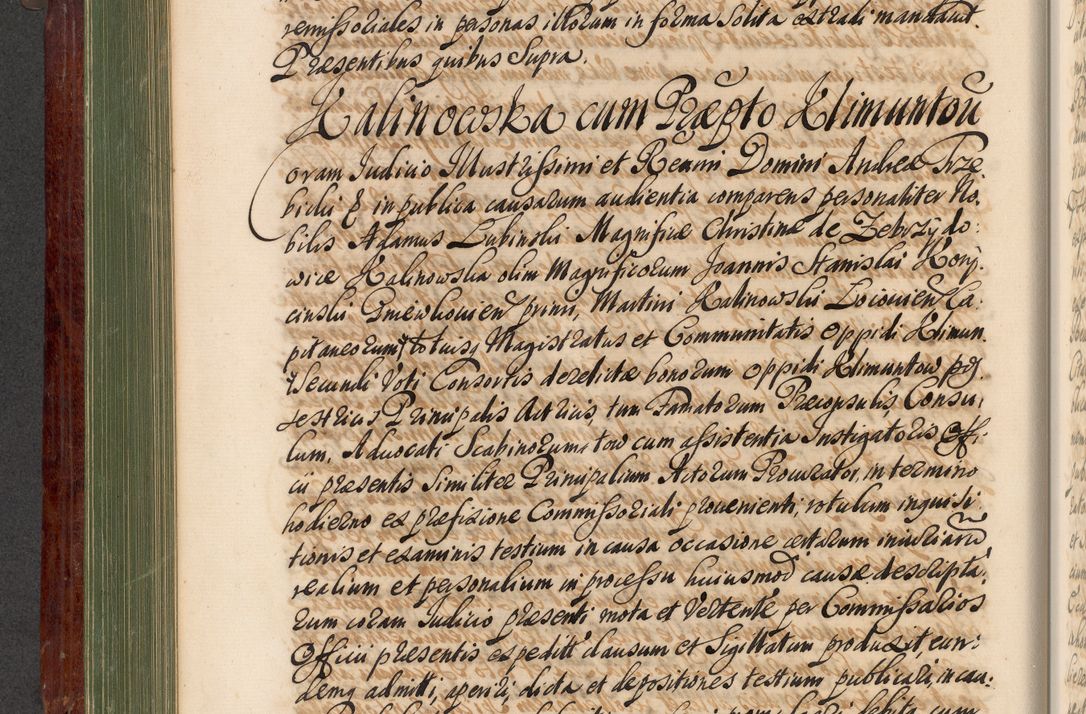 remissoriales in personas illorum in forma solita extradi mandavit.
Præsentibus quibus supra.
Kalinowska cum Præpto Klimuntoũ
oram Judicio Illustrissimi et Rẽvmi Domini Andreæ Trze
bicki & in publica causarum audientia comparens personaliter No.
bilis Adamus Lubinski Magnificæ Christinæ de Zebrzydo
wicæ Kalinowska olim Magnificorum Joannis Stanislai Kory.
cinski primi, Martini Kalinowski Ca.
pitaneorum totiusq Magistratus et Communitatis Oppidi Klimun.
Secundi Voti Consortis derelictæ bonorum oppidi Klimuntow
Principalis Actricis, tum Famatorum Præconsulis, Consu,
lum, Advocati Scabinorum, tow cum assistentia Instigatoris Offi
cii præsentis similiter Principalium Actorum Procurator, in termino
hodierno ex præfixione Commissoriali provenienti, rotulum inquisi
tionis et examinis testium in causa occasione certarum iniuriarũ
realium et personalium in processu huiusmod causæ descripta,
rum coram Judicio præsenti mota et Vertente per Commissarios
Officii præsentis expeditt clausum et Sigillatum produxit, eun:
demq admitti, aperiri, dicta et depositiones testium publicari, in cau: